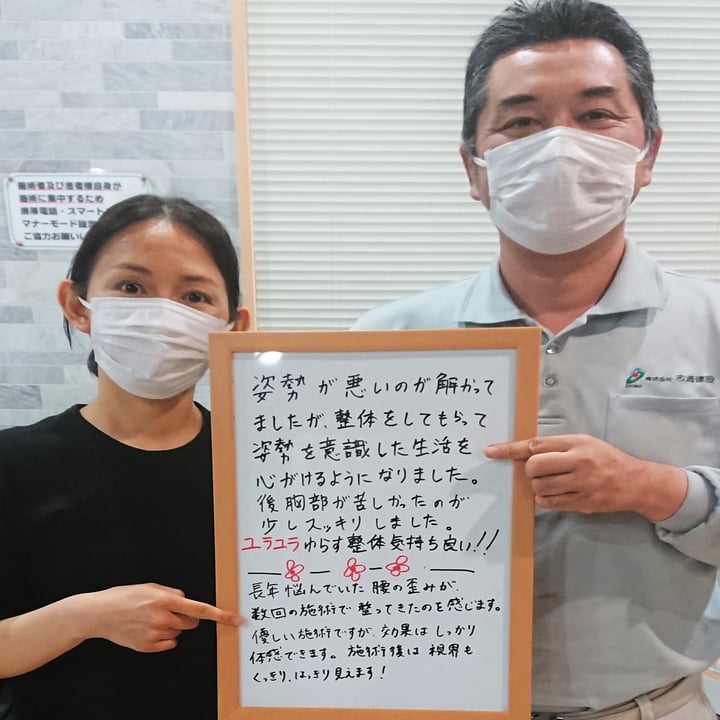 施術者及び患者様自身が
施術に集中するため
携帯電話・スマート
マナーモード設定
ご協力お願いし
株式会社
姿勢が悪いのが解かって
ましたが、整体をしてもらって
姿勢を意識した生活を
心がけるようになりました。
後胸部が苦しかったのが
少しスッキリしました。
ユラユラゆらす整体気持ち良い!!
長年悩んでいた腰の歪みが、
数回の施術で整ってきたのを感じます。
優しい施術ですが、効果はしっかり
体感できます。施術後は視界も
くっきり、はっきり見えます!